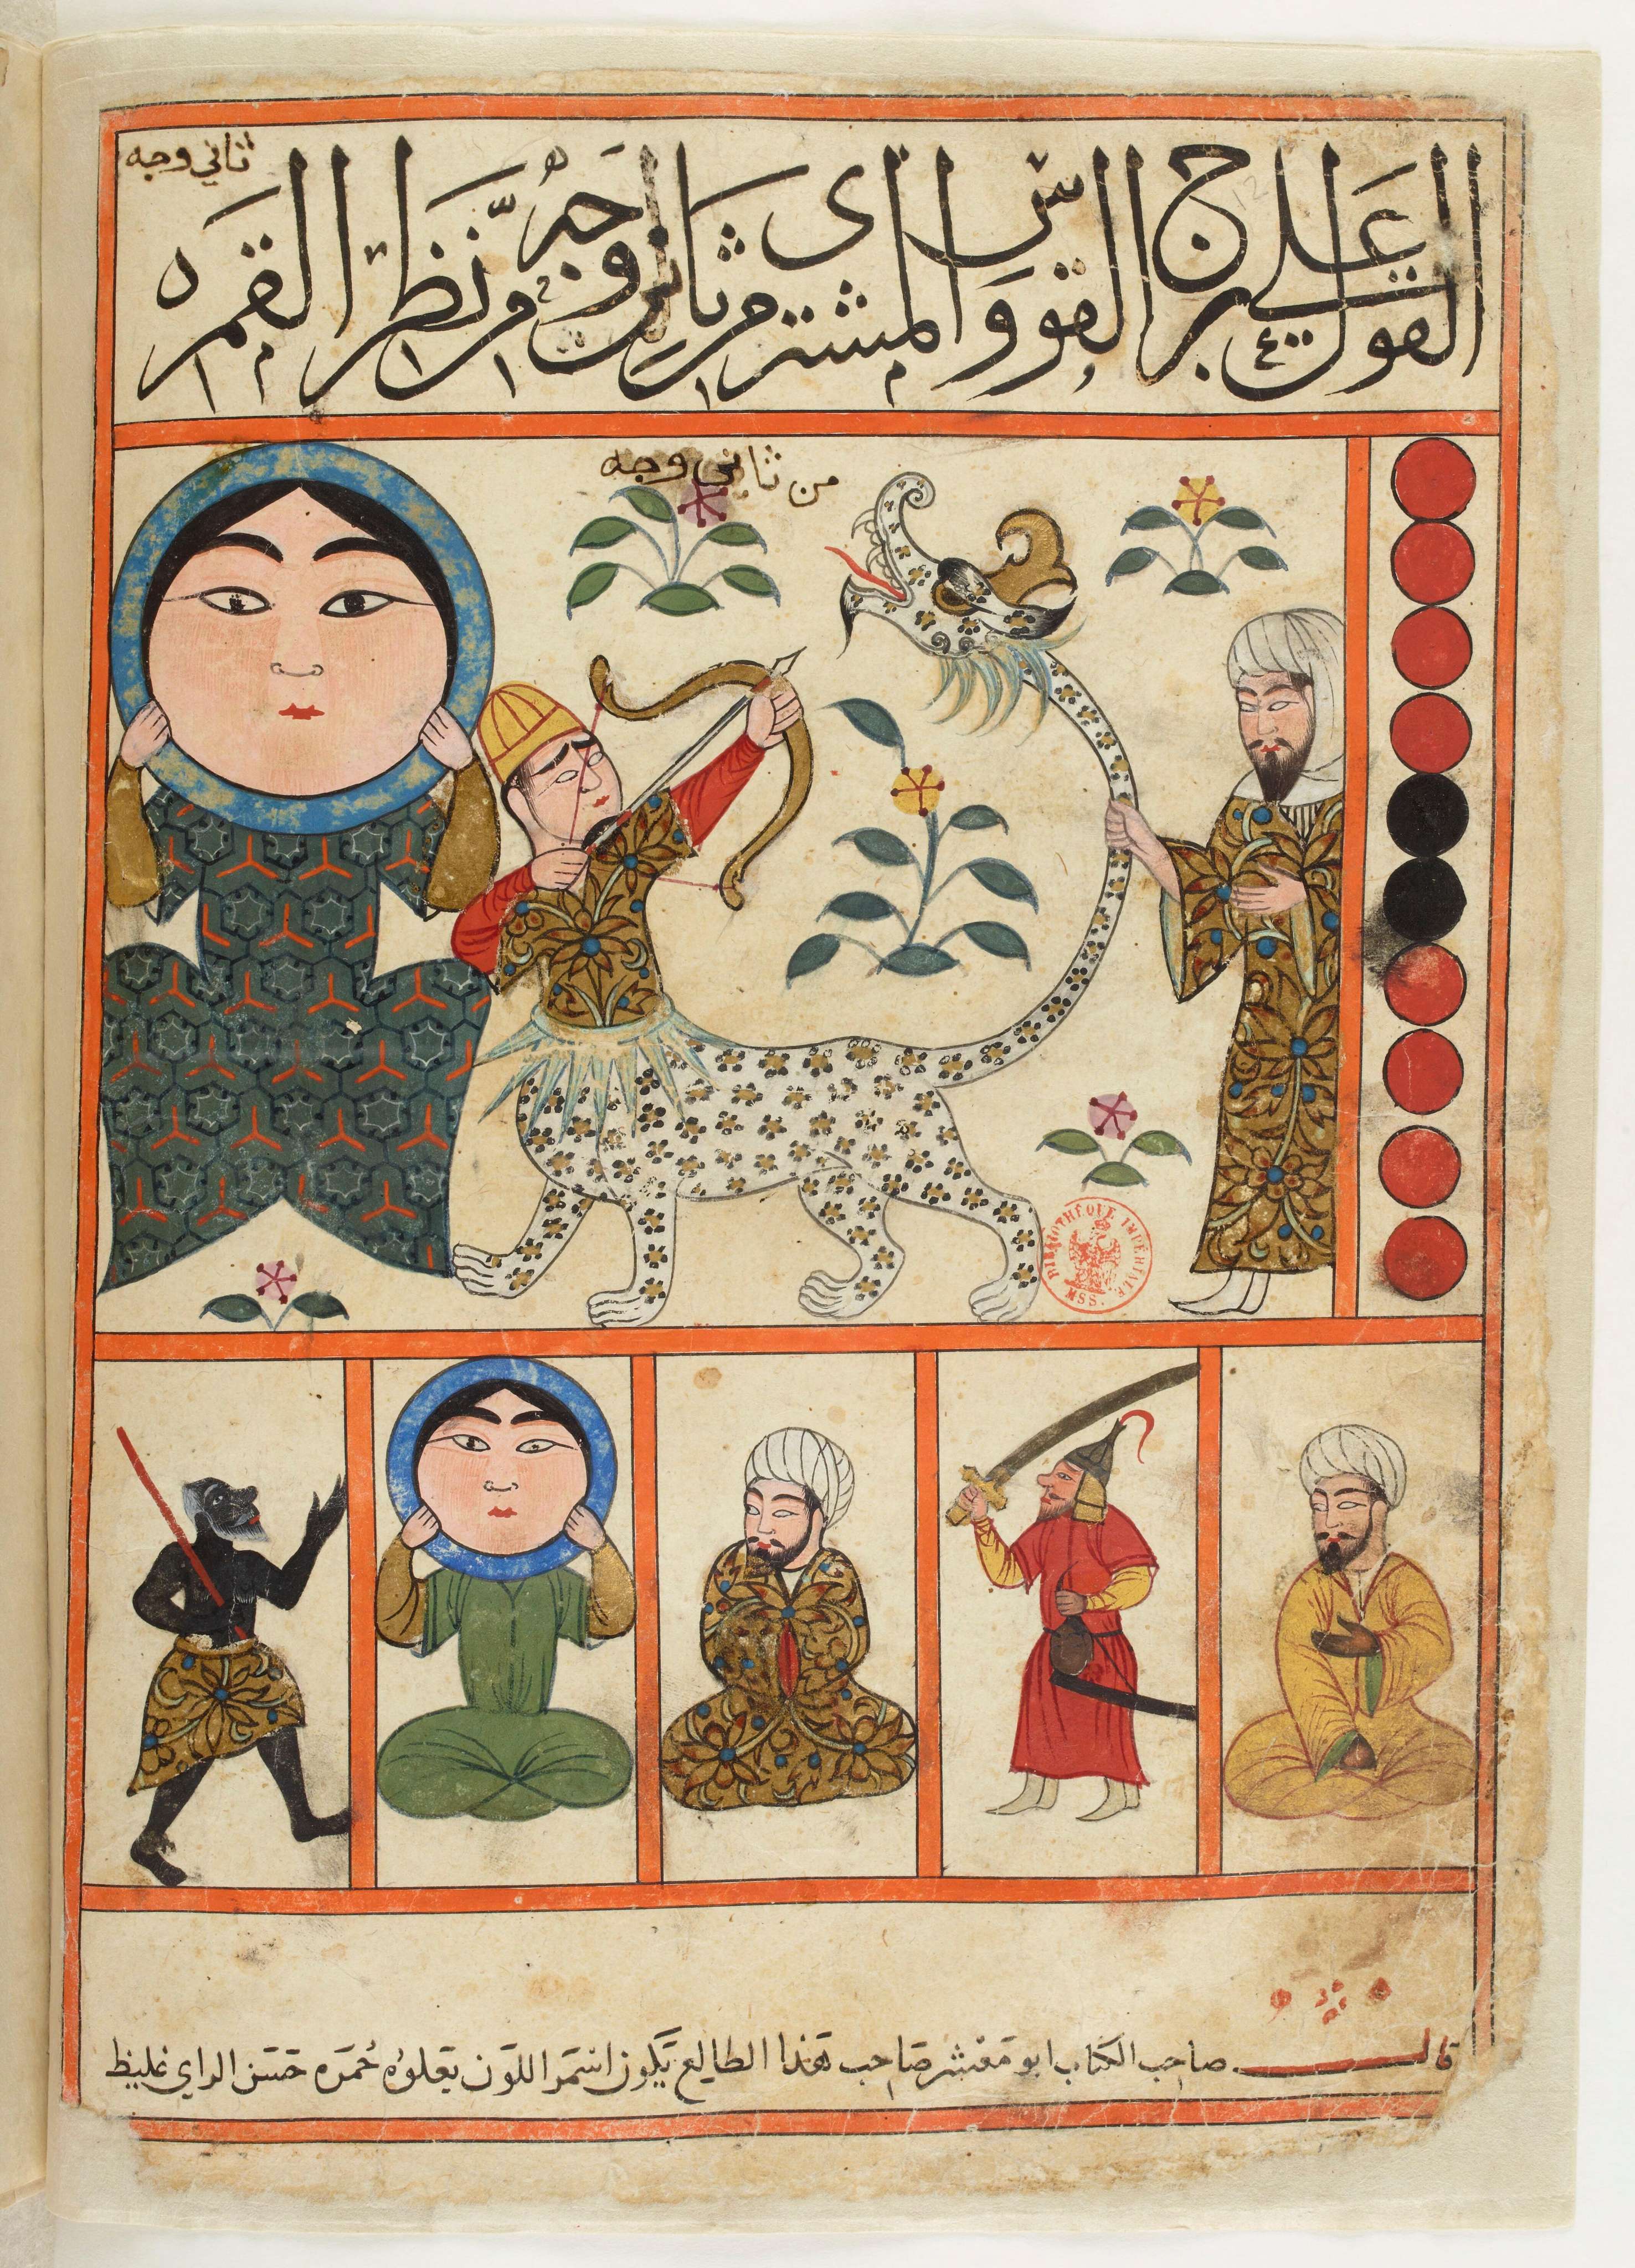 ثاني وجه
القول علي برج القوس والمشتري من ثاني وجه من نظر القمر
من ثاني وجه
BIBLIOTHÈQUE IMPÉRIALE MSS.
قال صاحب الكتاب ابو مَعْشر صَاحب هَذا الطالع يَكون اسْمَر اللوَن يَعلوُه حُمرَه حَسَن الراي غليظ